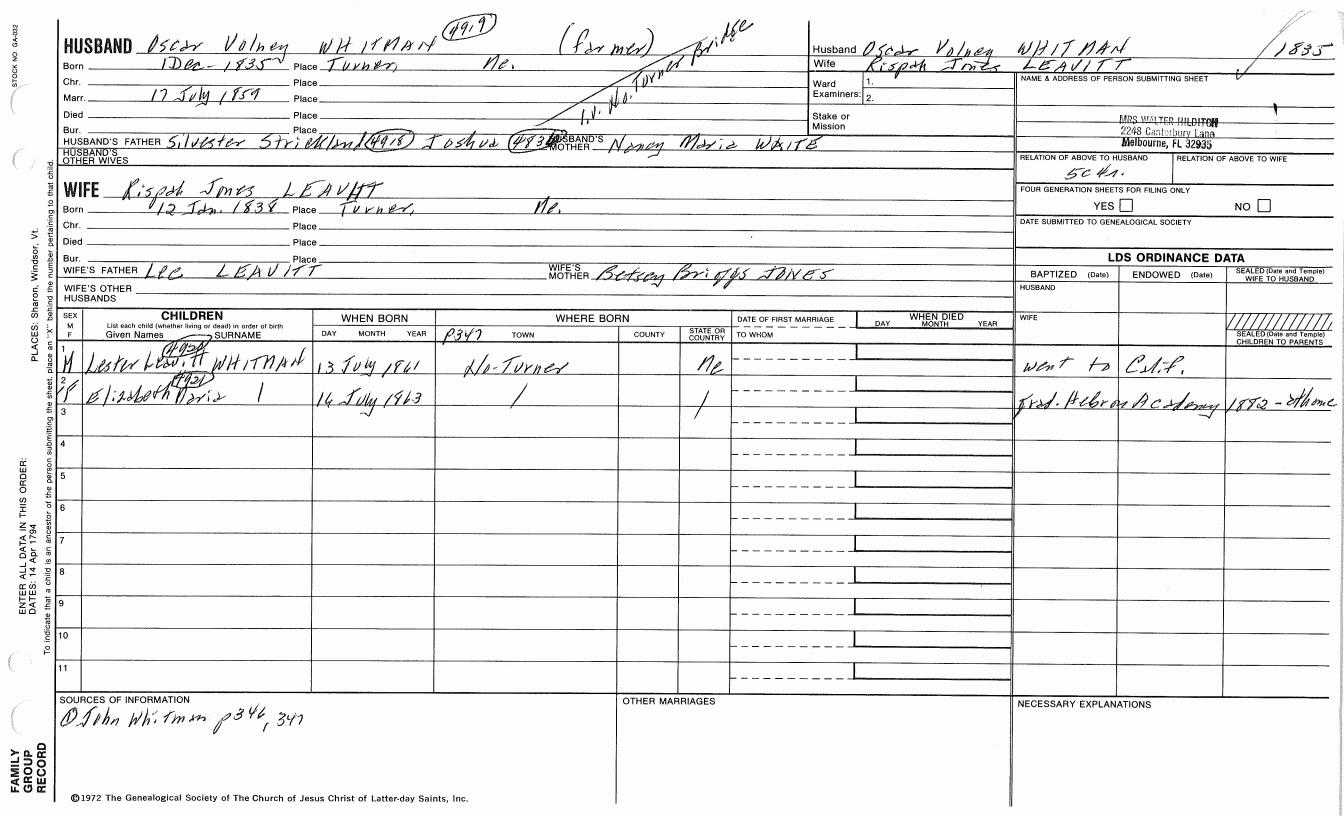 STOCK NO. GA-032
HUSBAND Oscar Volney WHITMAN 4919 (farmer)
Born 1 Dec - 1835 Place Turner, Me.
Chr. Place
Marr. 17 July 1859 Place
Died Place
Bur. Place
liv. No. Turner Bridge
HUSBAND'S FATHER Silvester Strickland 4918 Joshua HUSBAND'S MOTHER Nancy Maria WAITE
HUSBAND'S OTHER WIVES
Husband Oscar Volney WHITMAN 1835
Wife Rispah Jones LEAVITT
Ward Examiners: 1.
2.
Stake or Mission
NAME & ADDRESS OF PERSON SUBMITTING SHEET
MRS WALTER HILDITCH
2248 Canterbury Lane
Melbourne, FL 32935
RELATION OF ABOVE TO HUSBAND RELATION OF ABOVE TO WIFE
5C4r.
FOUR GENERATION SHEETS FOR FILING ONLY
YES NO
DATE SUBMITTED TO GENEALOGICAL SOCIETY
WIFE Rispah Jones LEAVITT
Born 12 Jan. 1838 Place Turner, Me.
Chr. Place
Died Place
Bur. Place
WIFE'S FATHER Lee LEAVITT WIFE'S MOTHER Betsey Briggs JONES
WIFE'S OTHER HUSBANDS
LDS ORDINANCE DATA
BAPTIZED (Date) ENDOWED (Date) SEALED (Date and Temple) WIFE TO HUSBAND
HUSBAND
WIFE
SEALED (Date and Temple) CHILDREN TO PARENTS
SEX M F CHILDREN WHEN BORN WHERE BORN DATE OF FIRST MARRIAGE WHEN DIED
List each child (whether living or dead) in order of birth
Given Names SURNAME DAY MONTH YEAR P347 TOWN COUNTY STATE OR COUNTRY TO WHOM DAY MONTH YEAR
1 M Lester Leavitt 4920 WHITMAN 13 July 1861 No-Turner Me went to Calif.
2 F Elizabeth Maria 4921 16 July 1863 Grad. Hebron Academy 1882 - at home
3
4
5
6
7
8
9
10
11
SOURCES OF INFORMATION
① John Whitman p346, 347
OTHER MARRIAGES
NECESSARY EXPLANATIONS
©1972 The Genealogical Society of The Church of Jesus Christ of Latter-day Saints, Inc.
FAMILY GROUP RECORD
ENTER ALL DATA IN THIS ORDER:
DATES: 14 Apr 1794
PLACES: Sharon, Windsor, Vt.
To indicate that a child is an ancestor of the person submitting the sheet, place an "X" behind the number pertaining to that child.